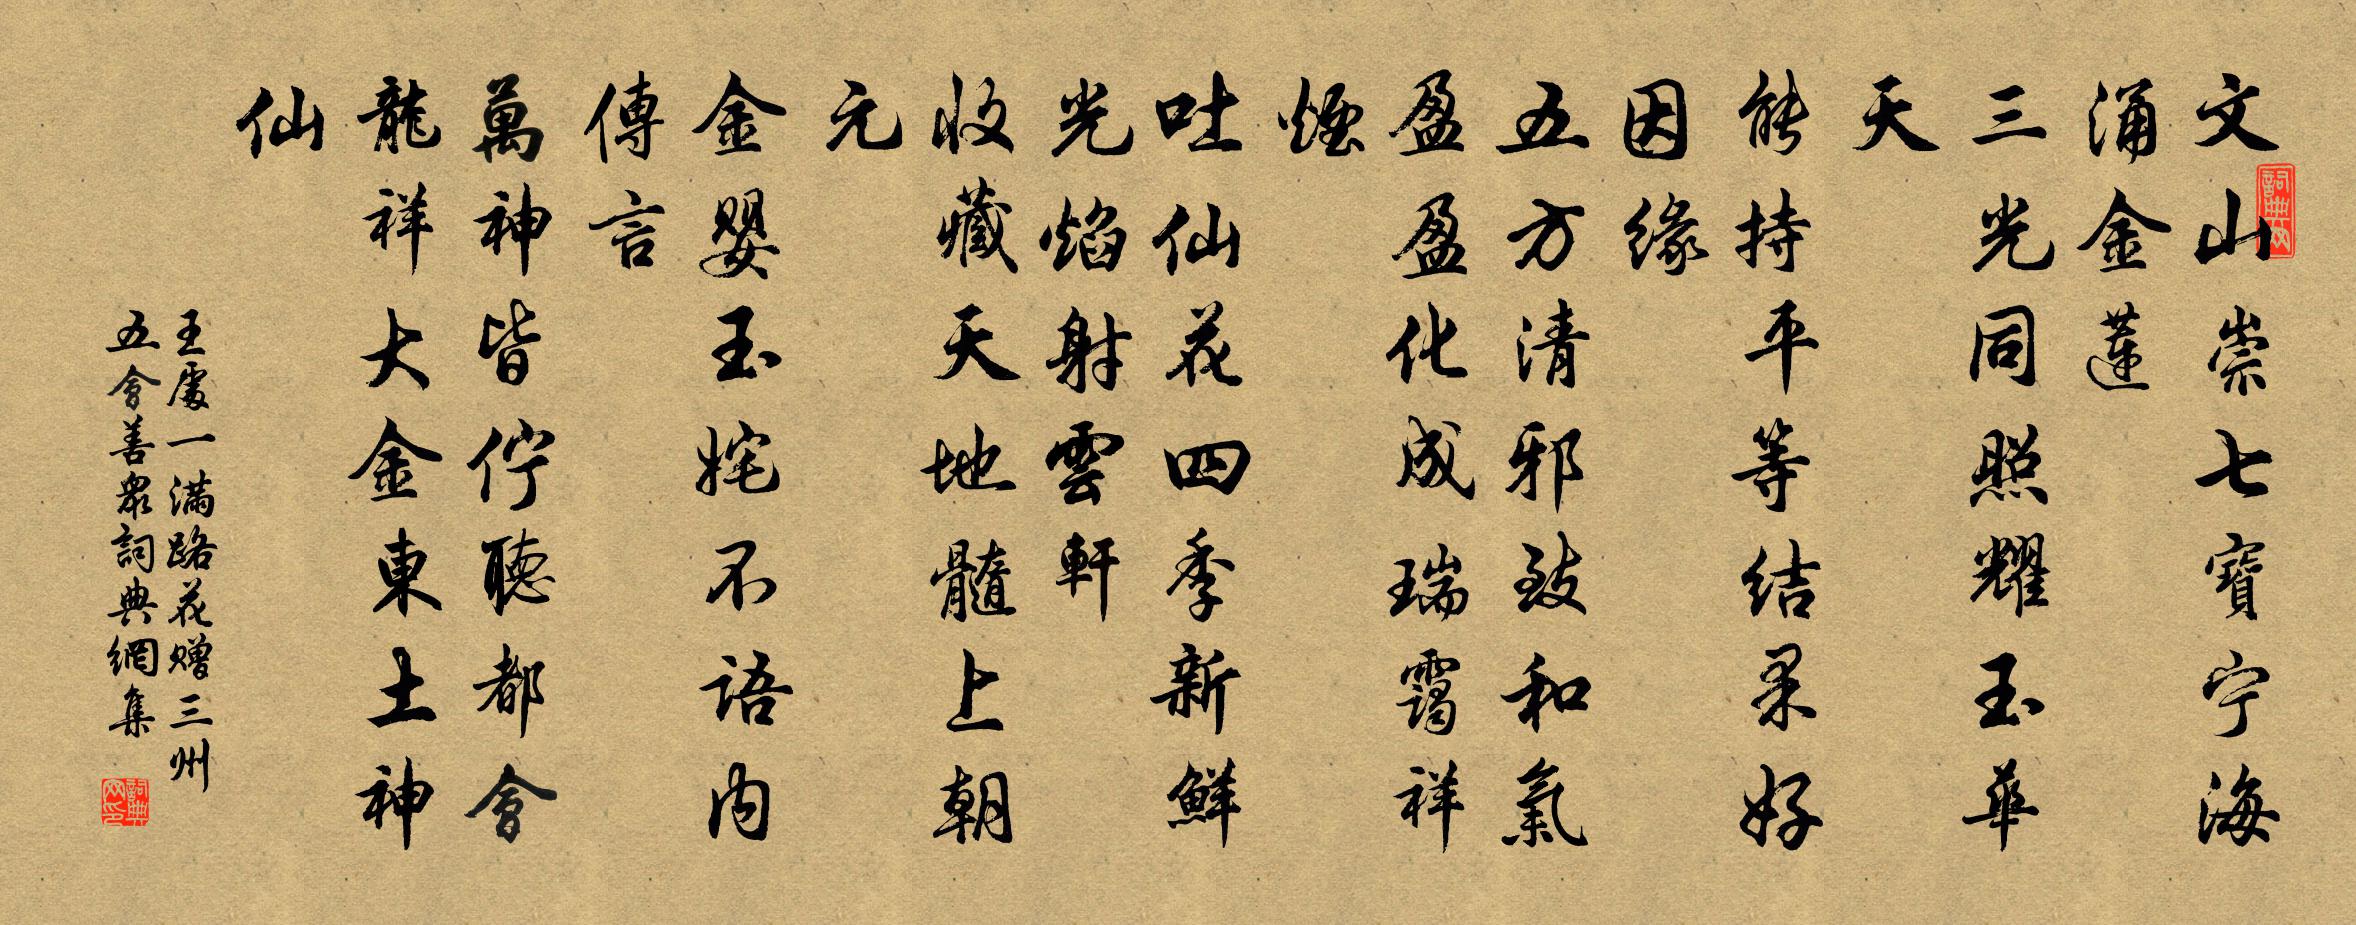 文山崇七寶宁海
涌金蓮
三光同照耀玉華
天
能持平等结果好
因缘
五方清邪致和氣
盈盈化成瑞靄祥
煙
吐仙花四季新鮮
光焰射雲軒
收藏天地髓上朝
元
金嬰玉姹不语内
傳言
萬神皆佇聽都會
龍祥大金東土神
仙
王處一满路花赠三州
五會善眾詞典網集
詞典网
詞典网印